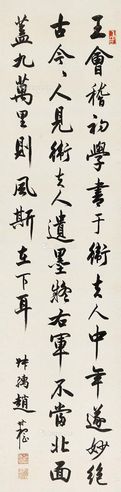 王會稽初學書于衛夫人中年遂妙絕
古今今人見衛夫人遺墨疑右軍不當北面
蓋九萬里則風斯在下耳
趙